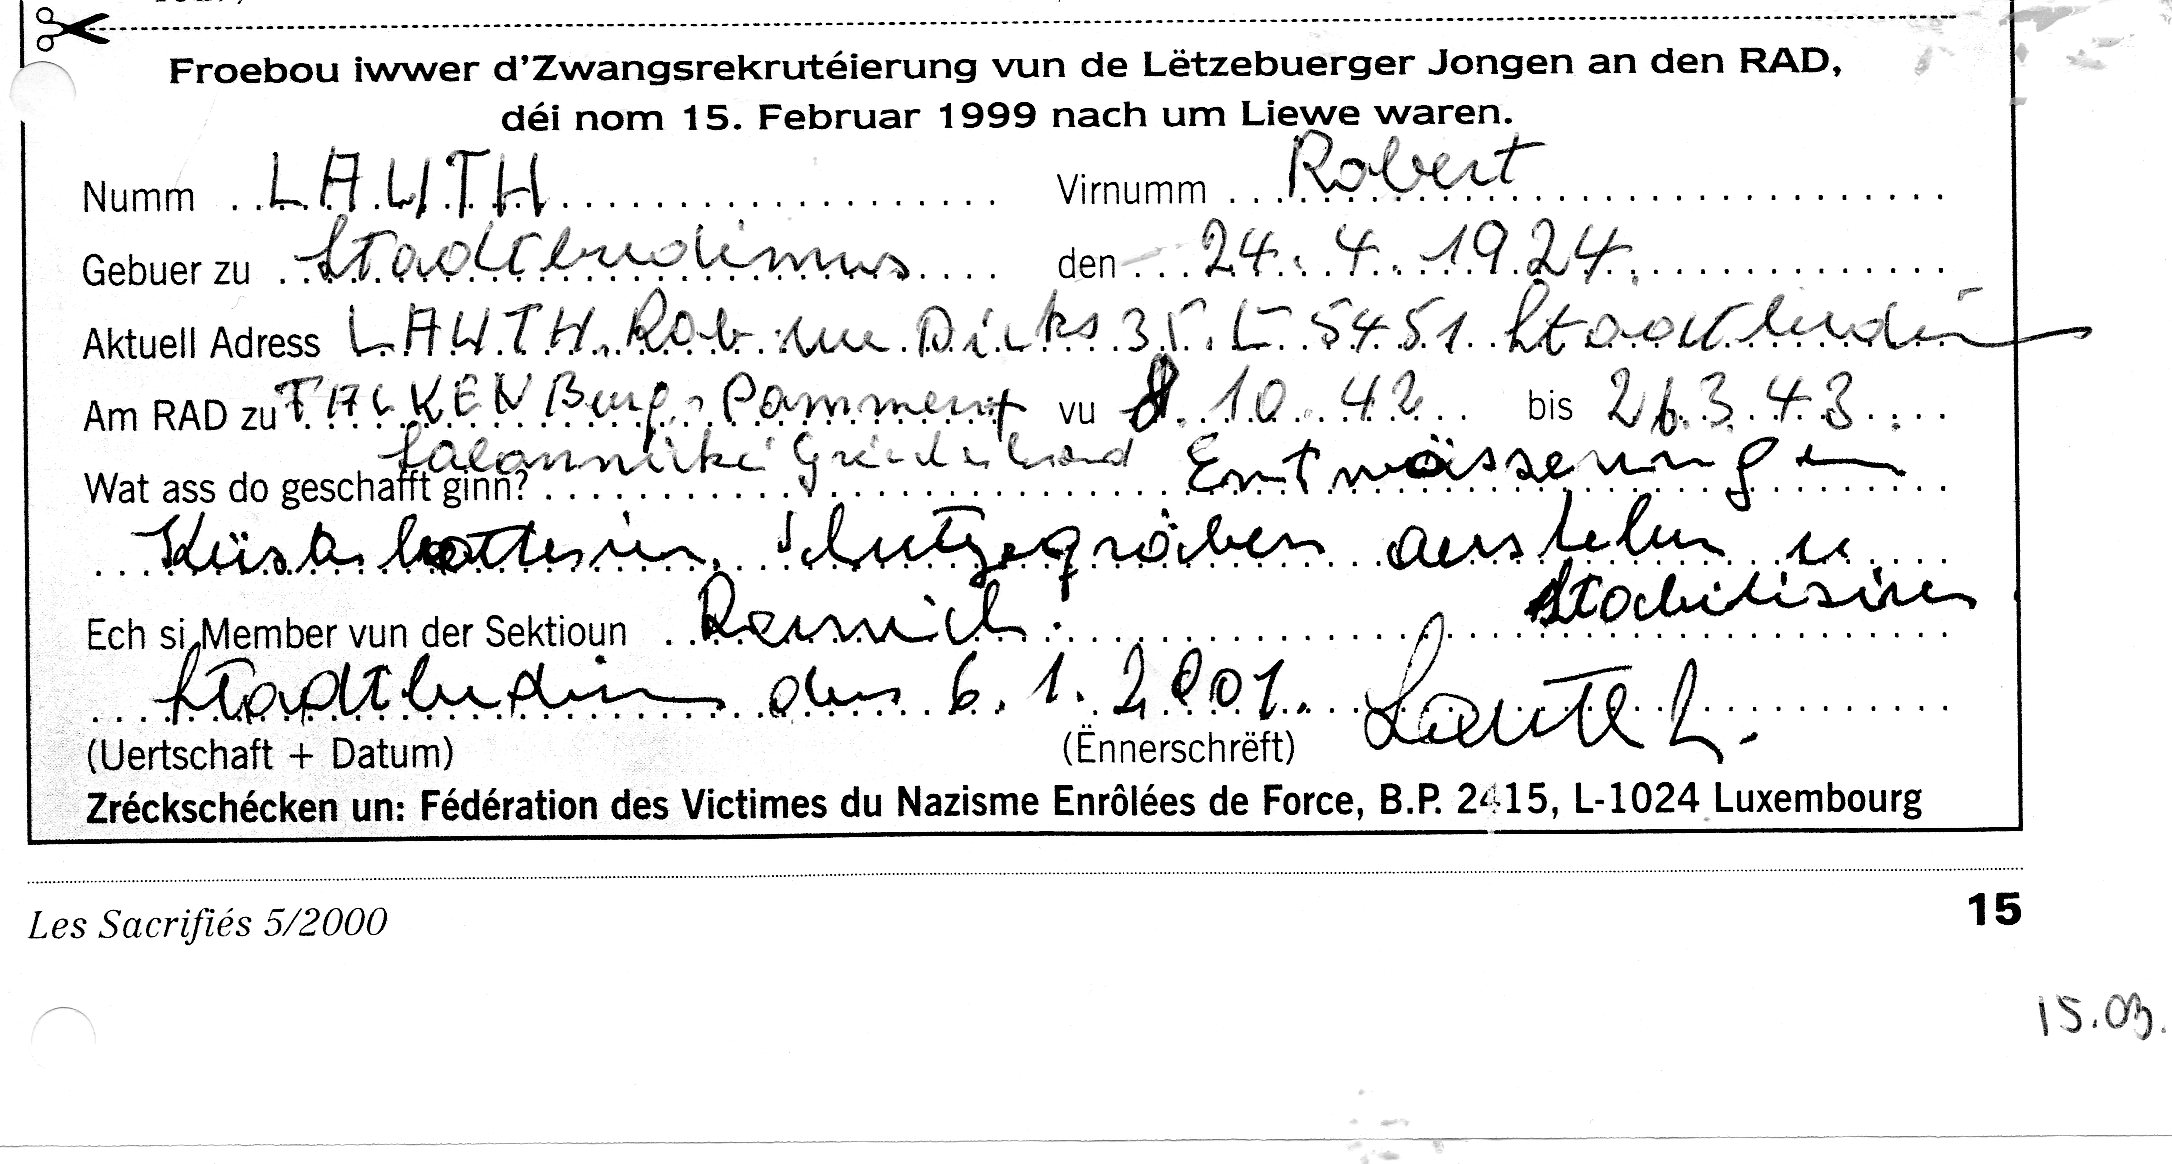 Froebou iwwer d'Zwangsrekrutéierung vun de Lëtzebuerger Jongen an den RAD,
déi nom 15. Februar 1999 nach um Liewe waren.
Numm LAUTH Virnumm Robert
Gebuer zu Stadtbredimus den 24. 4. 1924.
Aktuell Adress LAUTH Rob. rue Dicks 35. L-5451 Stadtbredim
Am RAD zu FALKENBurg, Pommern vu 8. 10. 42 bis 26.3.43.
Wat ass do geschafft ginn? Entwässerungen
Schutzgräben ausheben u
stabilisiren
Ech si Member vun der Sektioun Remich.
Stadtbredim den 6. 1. 2001. Lauth R.
(Uertschaft + Datum) (Ënnerschrëft)
Zréckschécken un: Fédération des Victimes du Nazisme Enrôlées de Force, B.P. 2415, L-1024 Luxembourg
Les Sacrifiés 5/2000 15
15.03.